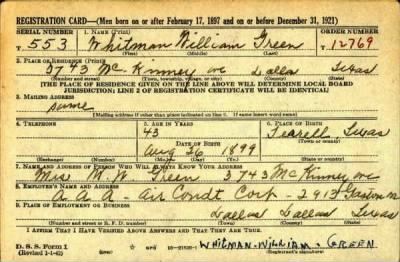 REGISTRATION CARD—(Men born on or after February 17, 1897 and on or before December 31, 1921)
SERIAL NUMBER 1. NAME (Print) ORDER NUMBER
T 553 Whitman William Green T 12769
(First) (Middle) (Last)
2. PLACE OF RESIDENCE (Print)
3743 McKinney ave Dallas Texas
(Number and street) (Town, township, village, or city) (County) (State)
[THE PLACE OF RESIDENCE GIVEN ON THE LINE ABOVE WILL DETERMINE LOCAL BOARD
JURISDICTION; LINE 2 OF REGISTRATION CERTIFICATE WILL BE IDENTICAL]
3. MAILING ADDRESS
same
[Mailing address if other than place indicated on line 2. If same insert word same]
4. TELEPHONE 5. AGE IN YEARS 6. PLACE OF BIRTH
43 Texas
DATE OF BIRTH (Town or county)
Aug 26 1899
(Exchange) (Number) (Mo.) (Day) (Yr.) (State or country)
7. NAME AND ADDRESS OF PERSON WHO WILL ALWAYS KNOW YOUR ADDRESS
Mrs M. W. Green 3743 McKinney ave
8. EMPLOYER'S NAME AND ADDRESS
A.A.A. Air Condt Corp - 2913 Gaston
9. PLACE OF EMPLOYMENT OR BUSINESS
Dallas Dallas Texas
(Number and street or R. F. D. number) (Town) (County) (State)
I AFFIRM THAT I HAVE VERIFIED ABOVE ANSWERS AND THAT THEY ARE TRUE.
D. S. S. Form 1
(Revised 1-1-42) WHITMAN-WILLIAM-GREEN
(Registrant's signature)